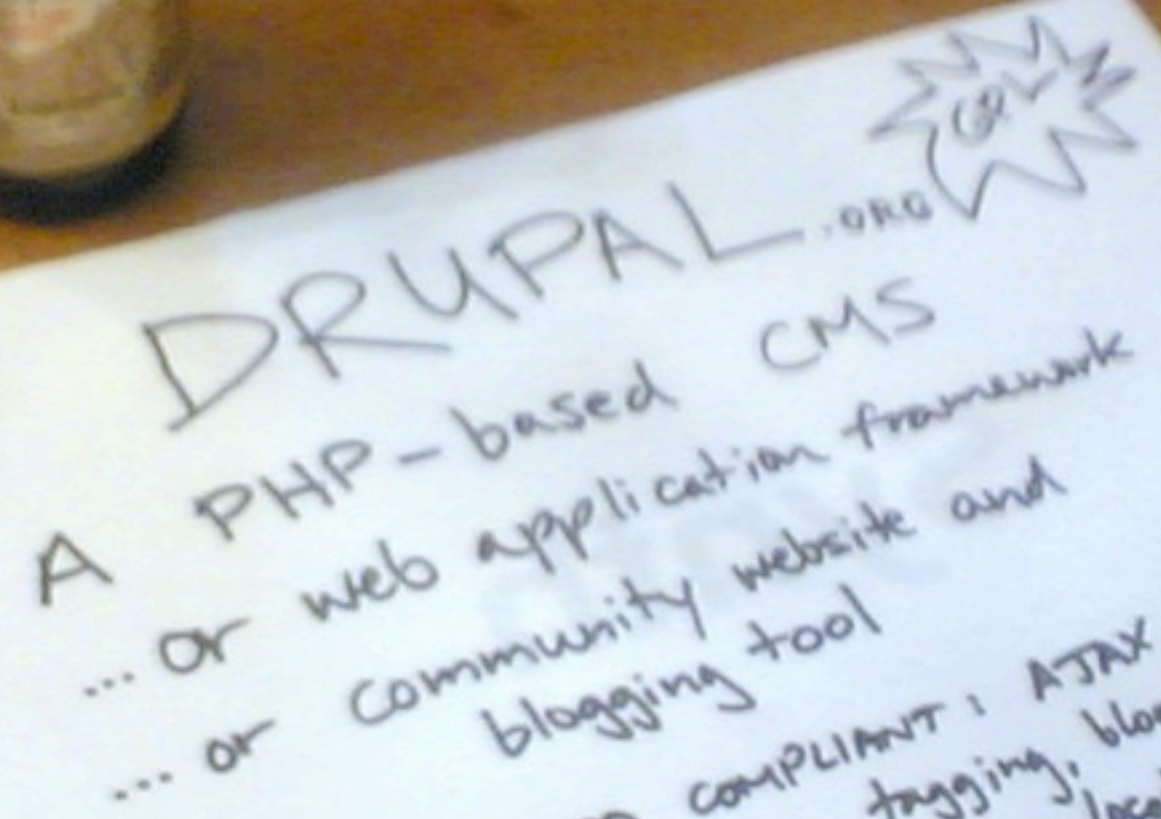 GPL
DRUPAL.ORG
A PHP-based CMS
... or web application framework
... or community website and
blogging tool
COMPLIANT: AJAX
tagging,